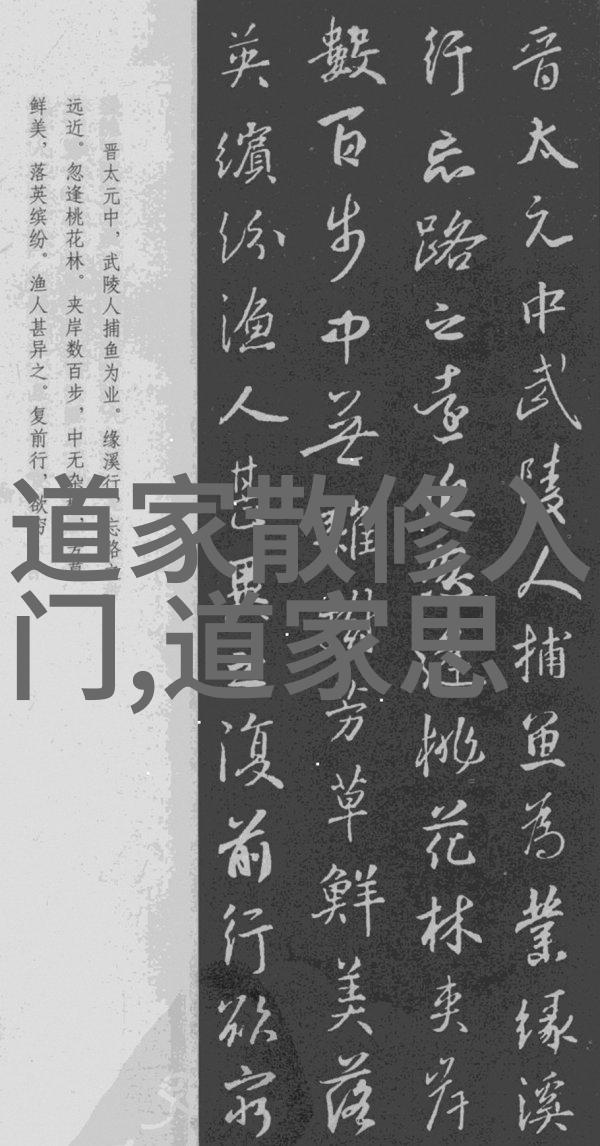 晋太元中武陵人捕魚為業緣溪
行忘路之遠近忽逢桃花林夾岸
數百步中無雜樹芳草鮮美落
英繽紛漁人甚異之復前行欲窮
晋太元中，武陵人捕鱼为业。缘溪行，忘路之
远近。忽逢桃花林。夹岸数百步，中无杂树，芳草
鲜美，落英缤纷。渔人甚异之。复前行，欲穷
道家散修入
门,道家思